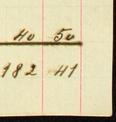 40 50
982 41